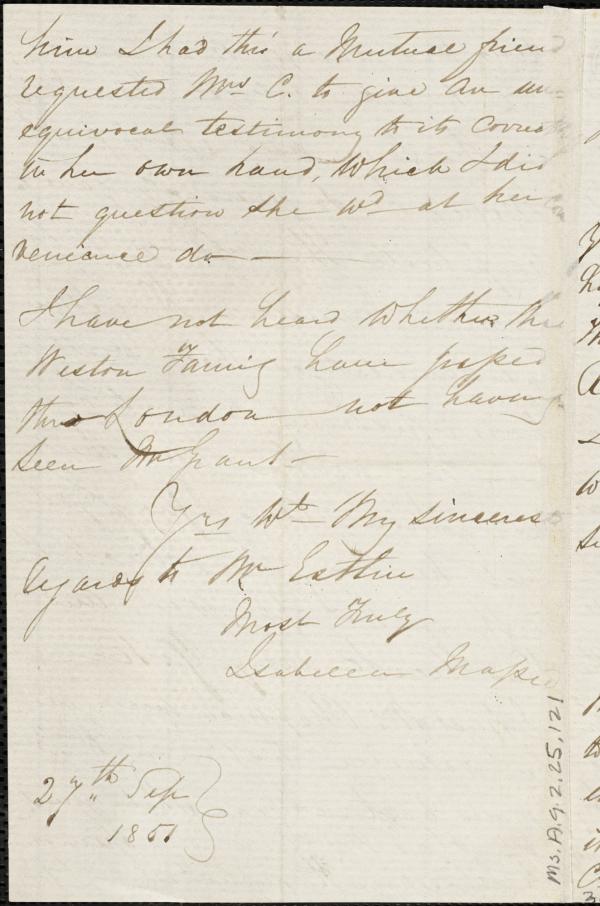 him I had this a Mutual friend
requested Mrs C. to give an un-
equivocal testimony to its correct
in her own hand, which I did
not question she wd at her con
venience do —
I have not heard whether the
Weston Family have passed
thro London not having
seen Mr Grant —
Yrs wth My sincerest
regards to Mr Estlin
Most Truly
Isabella Massie
27th Sep
1851
Ms.A.9.2.25,121